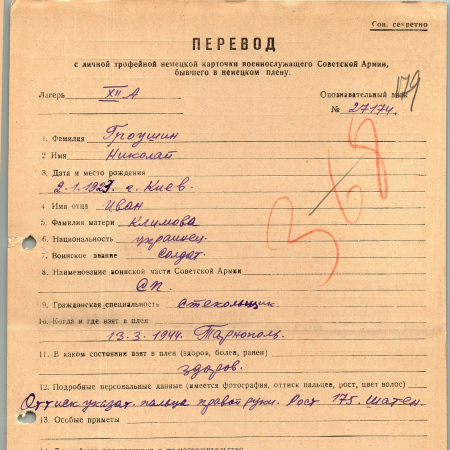 Сов. секретно
ПЕРЕВОД
с личной трофейной немецкой карточки военнослужащего Советской Армии,
бывшего в немецком плену.
Лагерь XII А Опознавательный знак
179
№ 27174.
368
1. Фамилия Гроушин
2. Имя Николай
3. Дата и место рождения
2.1.1923 г. Киев.
4. Имя отца Иван
5. Фамилия матери Климова
6. Национальность украинец.
7. Воинское звание Солдат.
8. Наименование воинской части Советской Армии
СП.
9. Гражданская специальность стекольщик.
10. Когда и где взят в плен
13.3.1944. Тарнополь.
11. В каком состоянии взят в плен (здоров, болен, ранен)
здоров.
12. Подробные персональные данные (имеется фотография, оттиск пальцев, рост, цвет волос)
Оттиск указат. пальца правой руки. Рост 175. Шатен.
13. Особые приметы